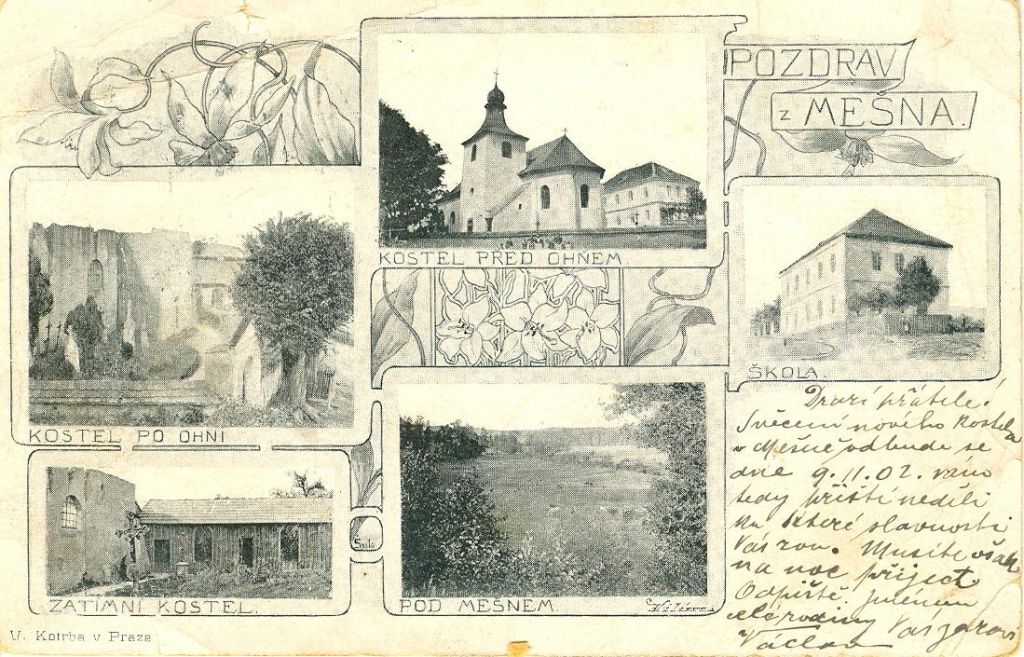 POZDRAV
z MEŠNA.
KOSTEL PŘED OHNEM.
KOSTEL PO OHNI
ŠKOLA.
ZATIMNÍ KOSTEL.
POD MEŠNEM.
V. Kotrba v Praze
Drazí přátelé!
Svěcení nového kostela
v Mešně odbude se
dne 9.11.02.
tedy příští neděli
ku které slavnosti
Vás zvou. Musíte však
na noc přijeti
Odpiště. Jménem
celé rodiny
Václav